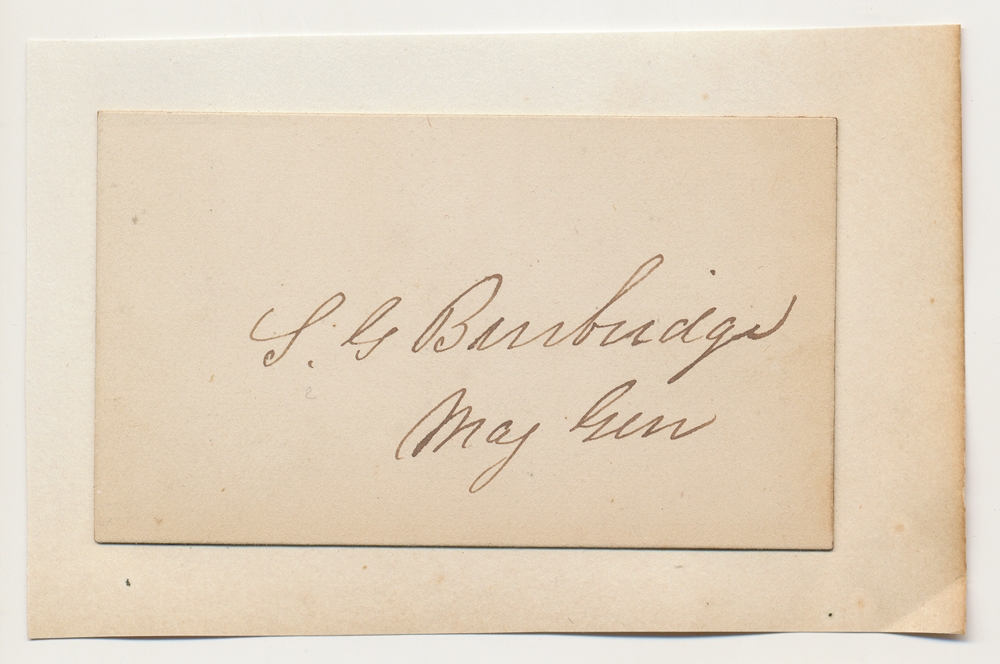 S. G Burbridge
Maj Gen